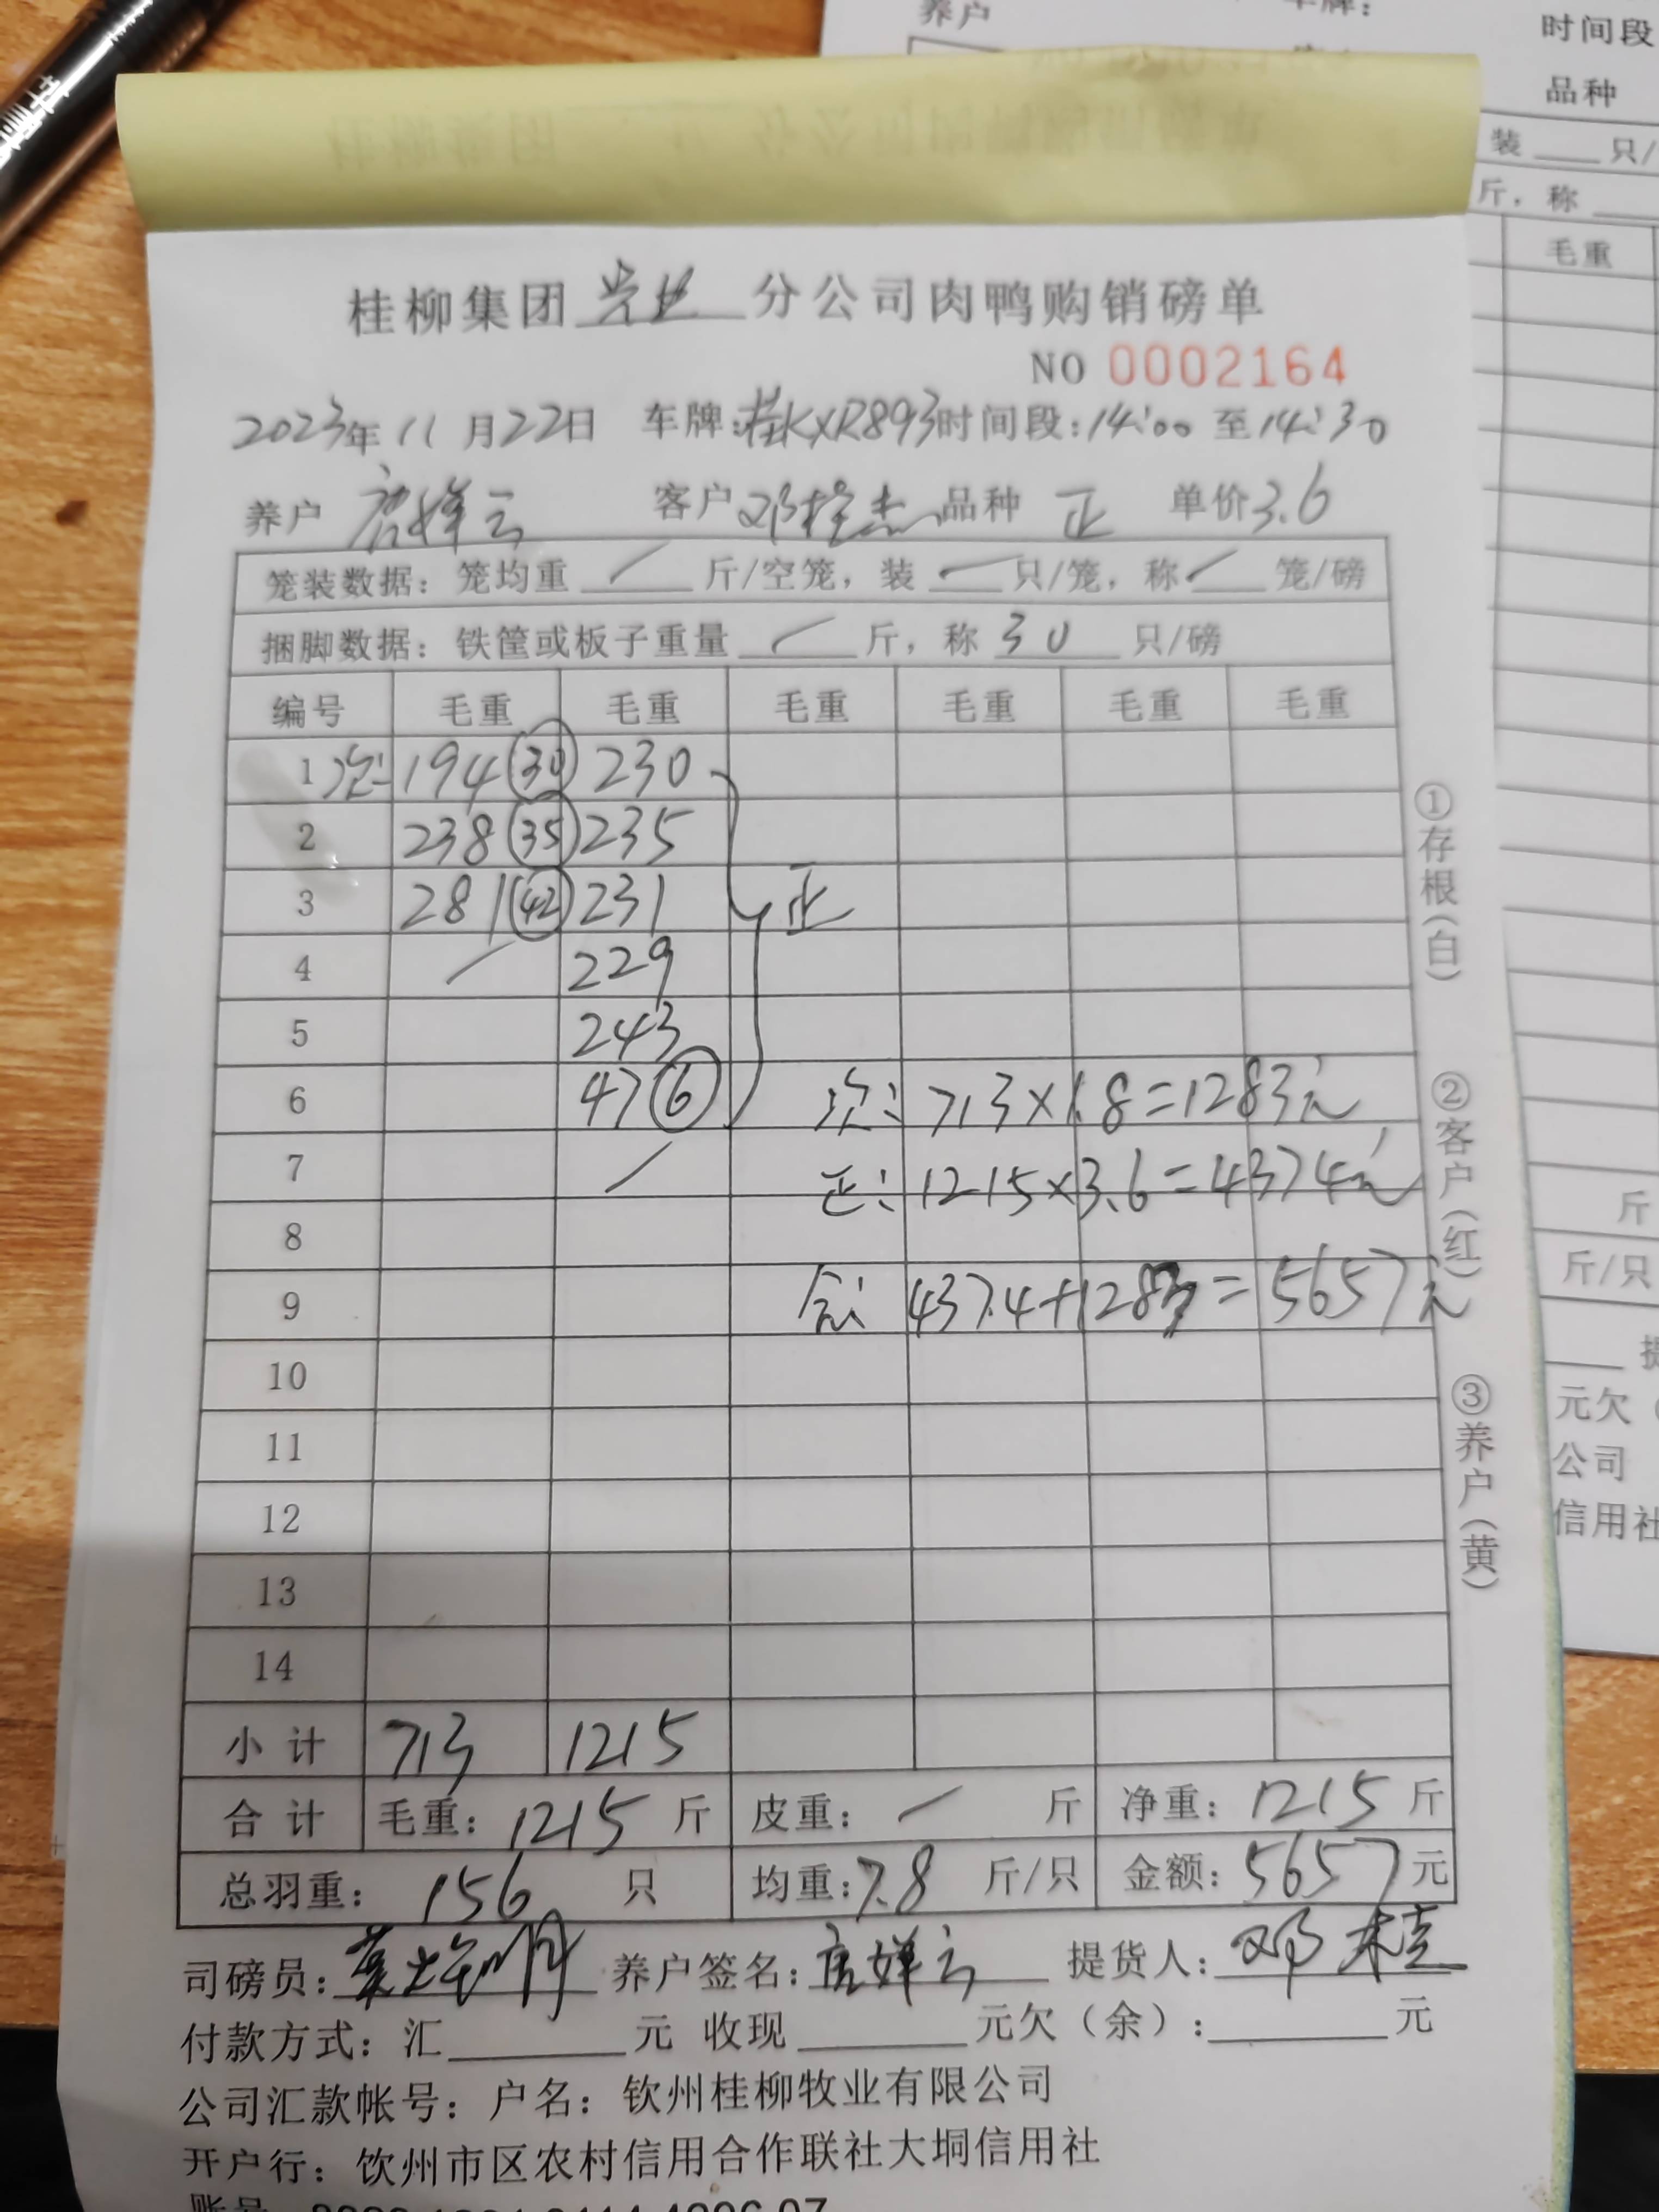 桂柳集团 分公司肉鸭购销磅单
NO 0002164
2023年11月22日 车牌:桂KXR893时间段:14:00至14:30
养户 客户邓桂杰品种 正 单价3.6
笼装数据:笼均重 / 斤/空笼,装 / 只/笼,称 / 笼/磅
捆脚数据:铁筐或板子重量 / 斤,称 30 只/磅
编号 毛重 毛重 毛重 毛重 毛重 毛重
1 次:194 30 230
2 238 35 235
3 281 42 231 正
4 / 229
5 243
6 47 6 次:713×1.8=1283元
7 / 正:1215×3.6=4374元
8
9 合:4374+1283=5657元
10
11
12
13
14
小计 713 1215
合计 毛重:1215斤 皮重:/ 斤 净重:1215斤
总羽重:156 只 均重:7.8 斤/只 金额:5657元
司磅员: 养户签名: 提货人:邓桂
付款方式:汇 元 收现 元欠(余): 元
公司汇款帐号:户名:钦州桂柳牧业有限公司
开户行:钦州市区农村信用合作联社大垌信用社
账号
①存根(白)
②客户(红)
③养户(黄)
养户 车牌:
时间段
品种
装 只/
斤,称
毛重
斤
斤/只
元欠(
公司
信用社